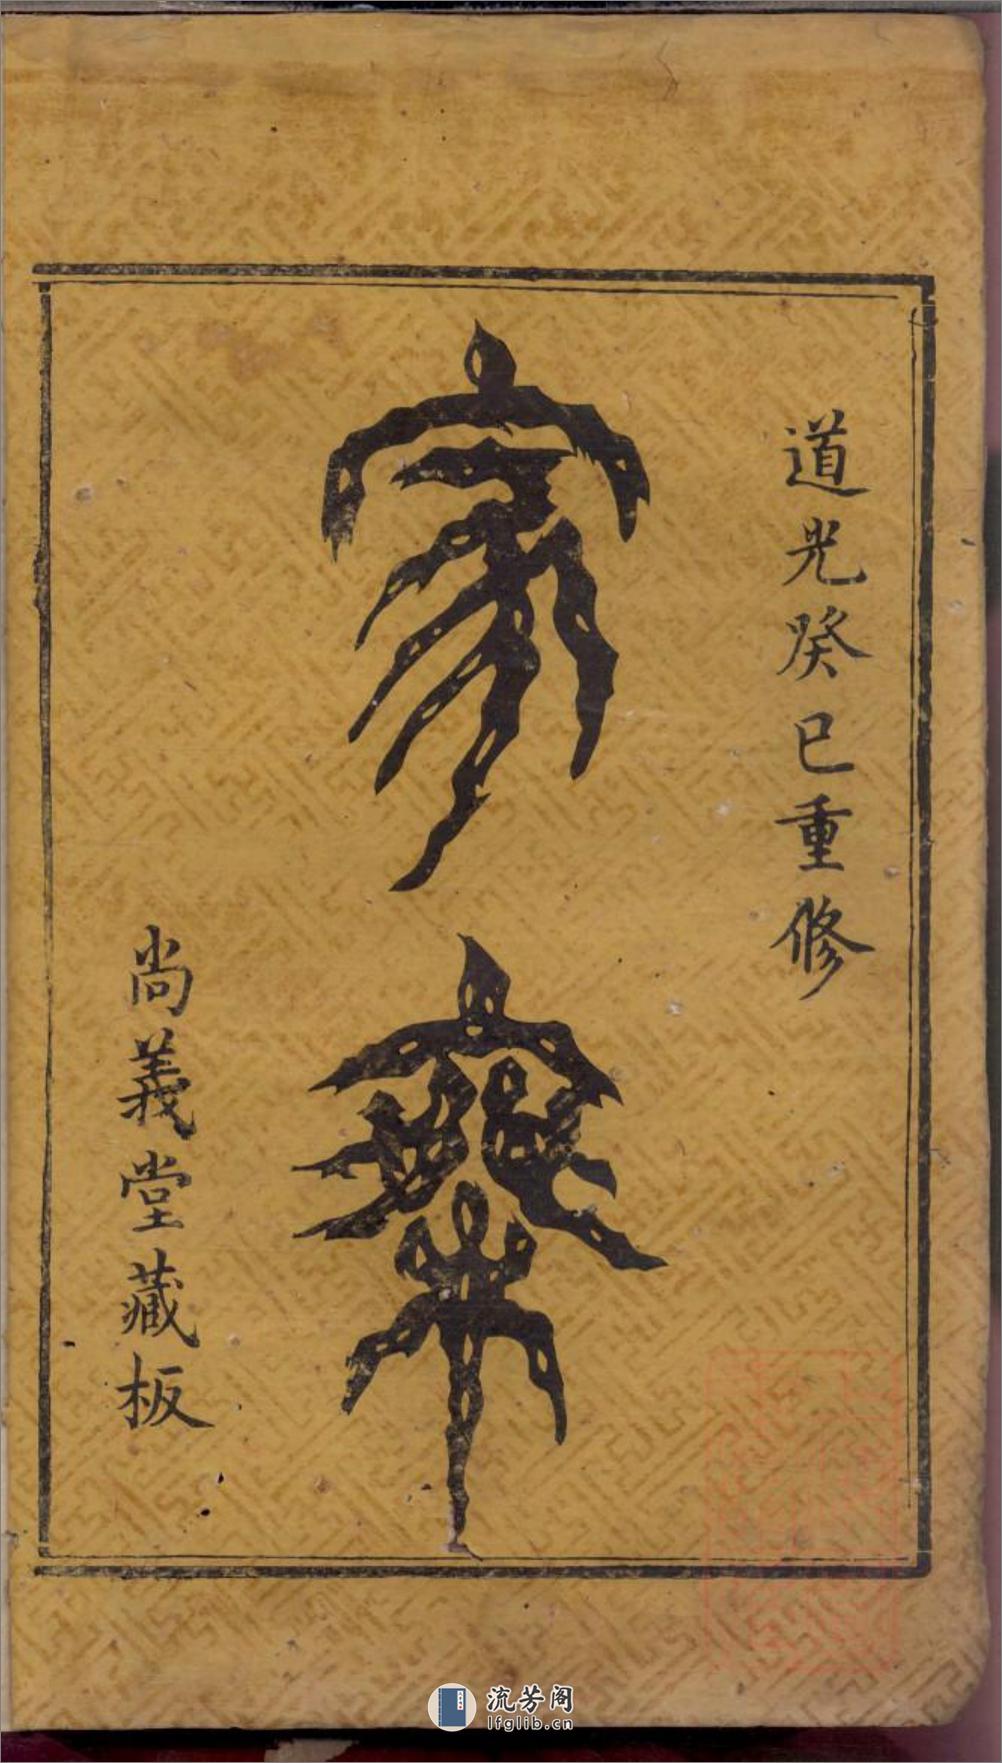 道光癸巳重修
家乘
尚義堂藏板
流芳阁
lfglib.cn